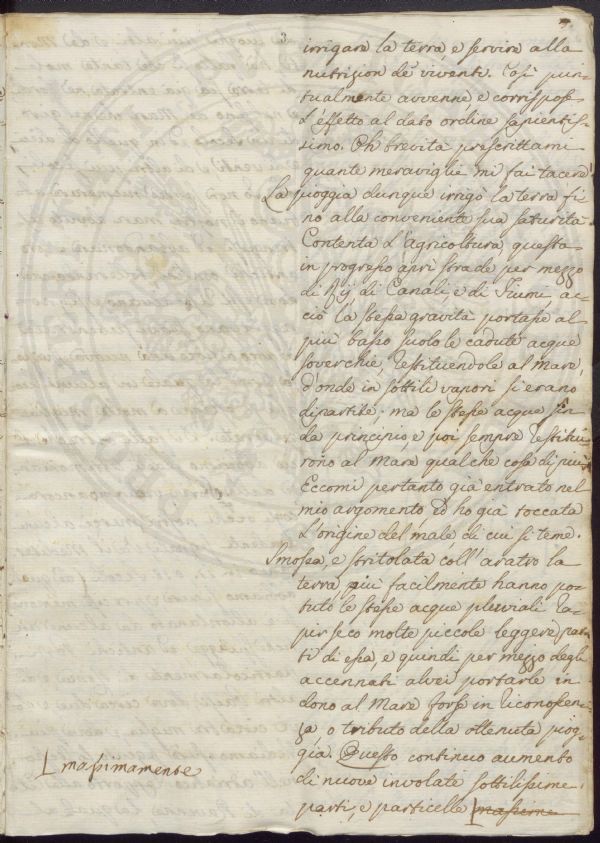 irrigare la terra, e servire alla
nutrizion de' viventi. Così pun-
tualmente avvenne, e corrispose
l'effetto al dato ordine sapientis-
simo. Oh brevità prescrittami
quante meraviglie mi fai tacere!
La pioggia dunque irrigò la terra fi
no alla conveniente sua saturità.
Contenta l'agricoltura, questa
in progresso aprì strade per mezzo
di Rij, di Canali, e di Fiumi, ac-
ciò la stessa gravità portasse al
più basso suolo le cadute acque
soverchie, restituendole al Mare,
d'onde in sottili vapori si erano
dipartite; ma le stesse acque sin
da principio, e poi sempre restitui
rono al Mare qualche cosa di più.
Eccomi pertanto già entrato nel
mio argomento, ed ho già toccata
l'origine del male, di cui si teme.
Smossa, e stritolata coll'aratro la
terra, più facilmente hanno po-
tuto le stesse acque pluviali ra-
pir seco molte piccole leggere par
ti di essa, e quindi per mezzo degli
accennati alvei portarle in
dono al Mare forse in riconoscen-
za, o tributo della ottenuta piog-
gia. Questo continuo aumento
di nuove involate sottilissime
parti, e particelle massime
massimamente